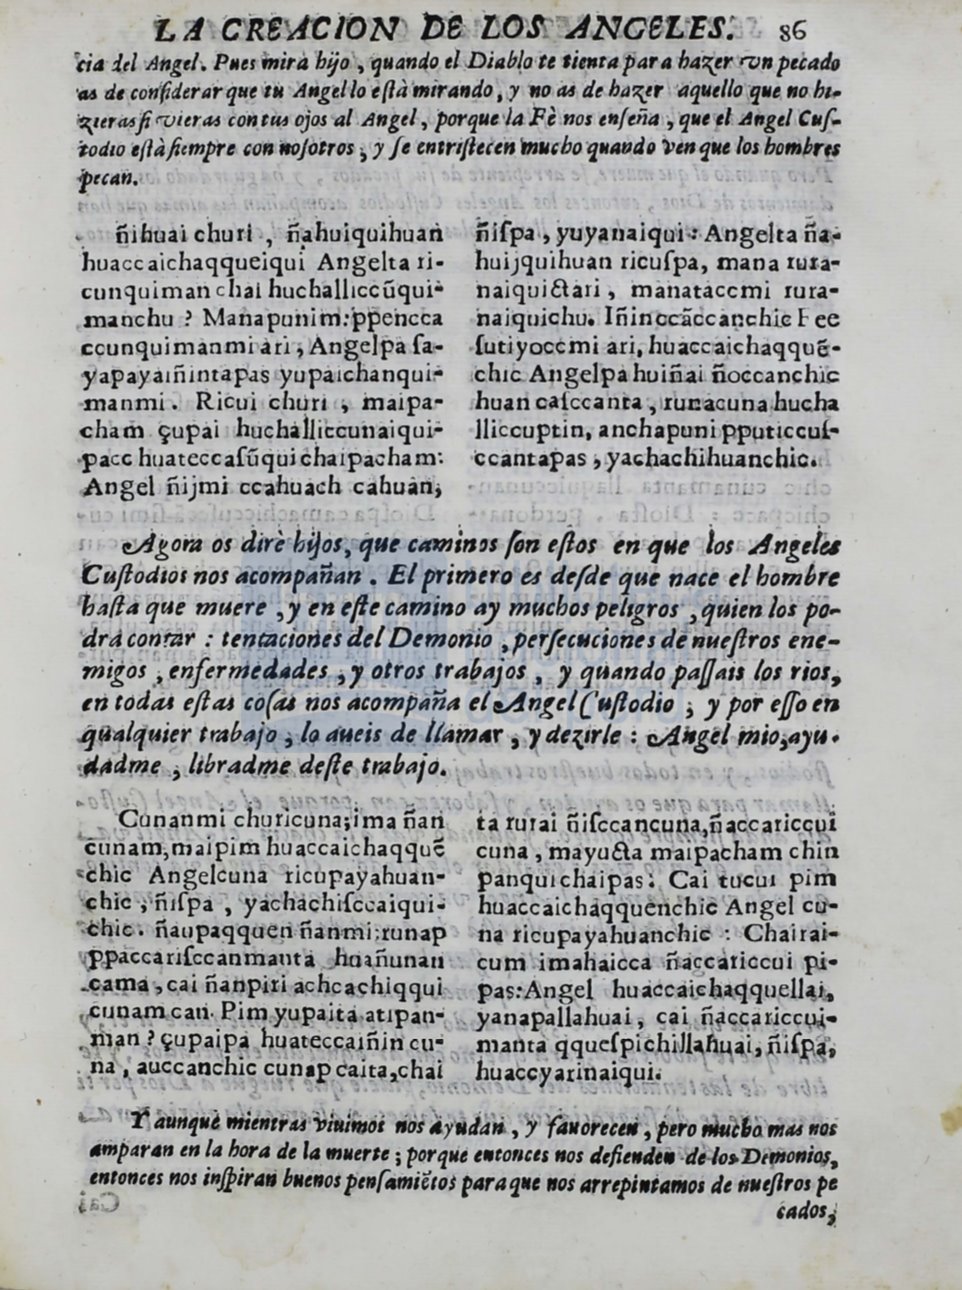 LA CREACION DE LOS ANGELES. 86
cia del Angel. Pues mira hijo, quando el Diablo te tienta para hazer vn pecado
as de considerar que tu Angel lo està mirando, y no as de hazer aquello que no hi-
zieras si vieras con tus ojos al Angel, porque la Fè nos enseña, que el Angel Cus-
todio està siempre con nosotros, y se entristecen mucho quando ven que los hombres
pecan.
ñihuai churi, ñahuiquihuan
huaccaichaqqueiqui Angelta ri-
cunquiman chai huchalliccūqui-
manchu? Manapunim: ppencca
ccunquimanmi ari, Angelpa sa-
yapayaiñintapas yupaichanqui-
manmi. Ricui churi, maipa-
cham çupai huchalliccunaiqui-
pacc huateccasūqui chaipacham:
Angel ñijmi ccahuach cahuan,
ñispa, yuyanaiqui: Angelta ña-
huijquihuan ricuspa, mana rura-
naiquictari, manataccmi rura-
naiquichu. Iñinccāccanchic Fee
sutiyoccmi ari, huaccaichaqquē-
chic Angelpa huiñai ñoccanchic
huan casccanta, runacuna hucha
lliccuptin, anchapuni pputiccus-
ccantapas, yachachihuanchic.
Agora os dirè hijos, que caminos son estos en que los Angeles
Custodios nos acompañan. El primero es desde que nace el hombre
hasta que muere, y en este camino ay muchos peligros, quien los po-
drà contar: tentaciones del Demonio, persecuciones de nuestros ene-
migos, enfermedades, y otros trabajos, y quando passais los rios,
en todas estas cosas nos acompaña el Angel Custodio; y por esso en
qualquier trabajo, lo aueis de llamar, y dezirle: Angel mio, ayu-
dadme, libradme deste trabajo.
Cunanmi churicuna, ima ñan
cunam, maipim huaccaichaqquē
chic Angelcuna ricupayahuan-
chic, ñispa, yachachisccaiqui-
chic. ñaupaqquen ñanmi: runap
ppaccarisccanmanta huañunan
cama, cai ñanpiri achcachiqqui
cunam can. Pim yupaita atipan-
man? çupaipa huateccaiñin cu-
na, auccanchic cunap caita, chai
ta rurai ñisccancuna, ñaccariccui
cuna, mayucta maipacham chin
panqui chaipas: Cai tucui pim
huaccaichaqquenchic Angel cu-
na ricupayahuanchic: Chairai-
cum imahaicca ñaccariccui pi-
pas: Angel huaccaichaqquellai,
yanapallahuai, cai ñaccariccui-
manta qquespichillahuai, ñispa,
huaccyarinaiqui.
Y aunque mientras viuimos nos ayudan, y fauorecen, pero mucho mas nos
amparan en la hora de la muerte; porque entonces nos defienden de los Demonios,
entonces nos inspiran buenos pensamiētos para que nos arrepintamos de nuestros pe
cados,